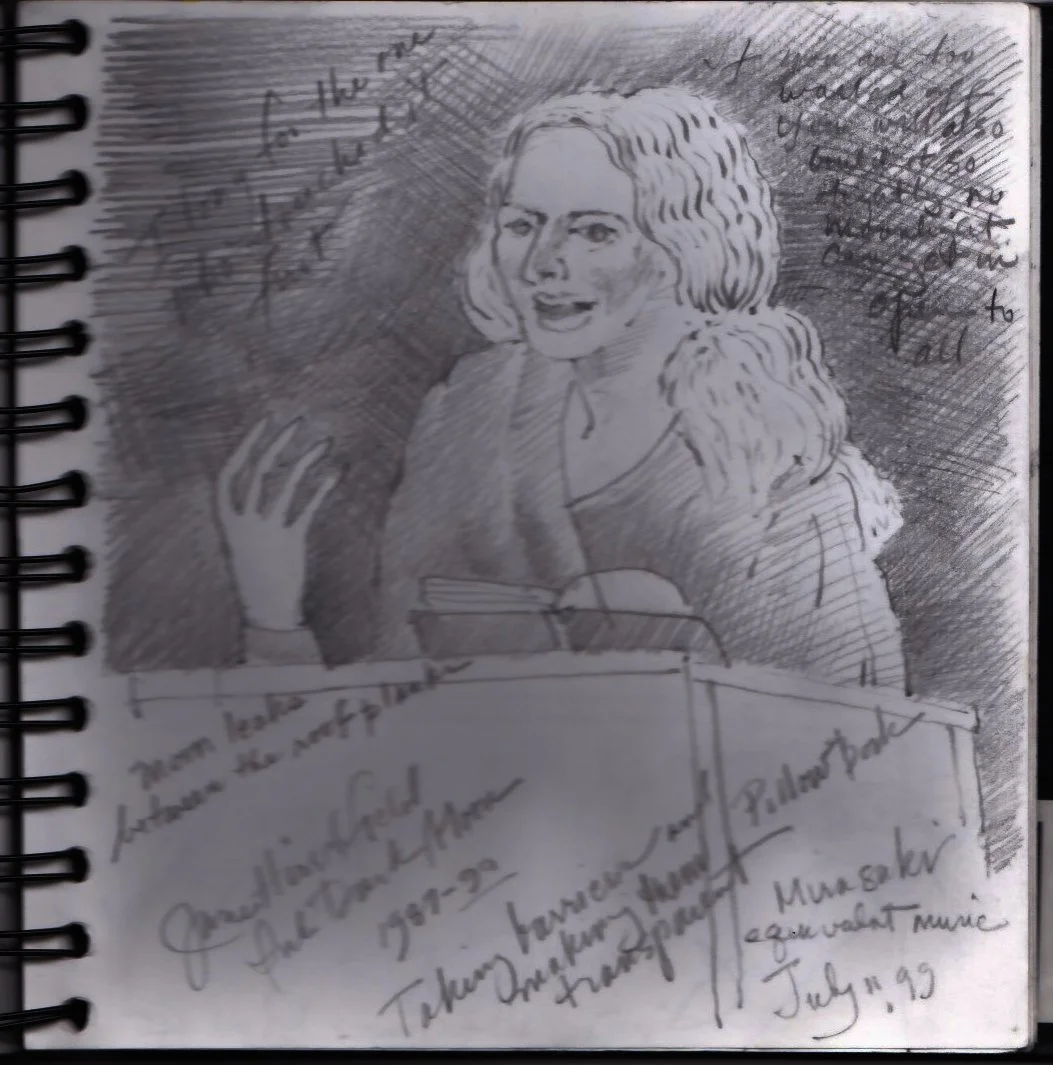 for the one
touched it
If you are too
walled off
you will also
build it so
tightly, no
moonlight
can get in
open to
all
Moon leaks
between the roof planks
Jane Hirshfield
Ink Dark Moon
Taking barriers and
making them
transparent
Pillow book
Murasaki
equivalat music
July 11, 99